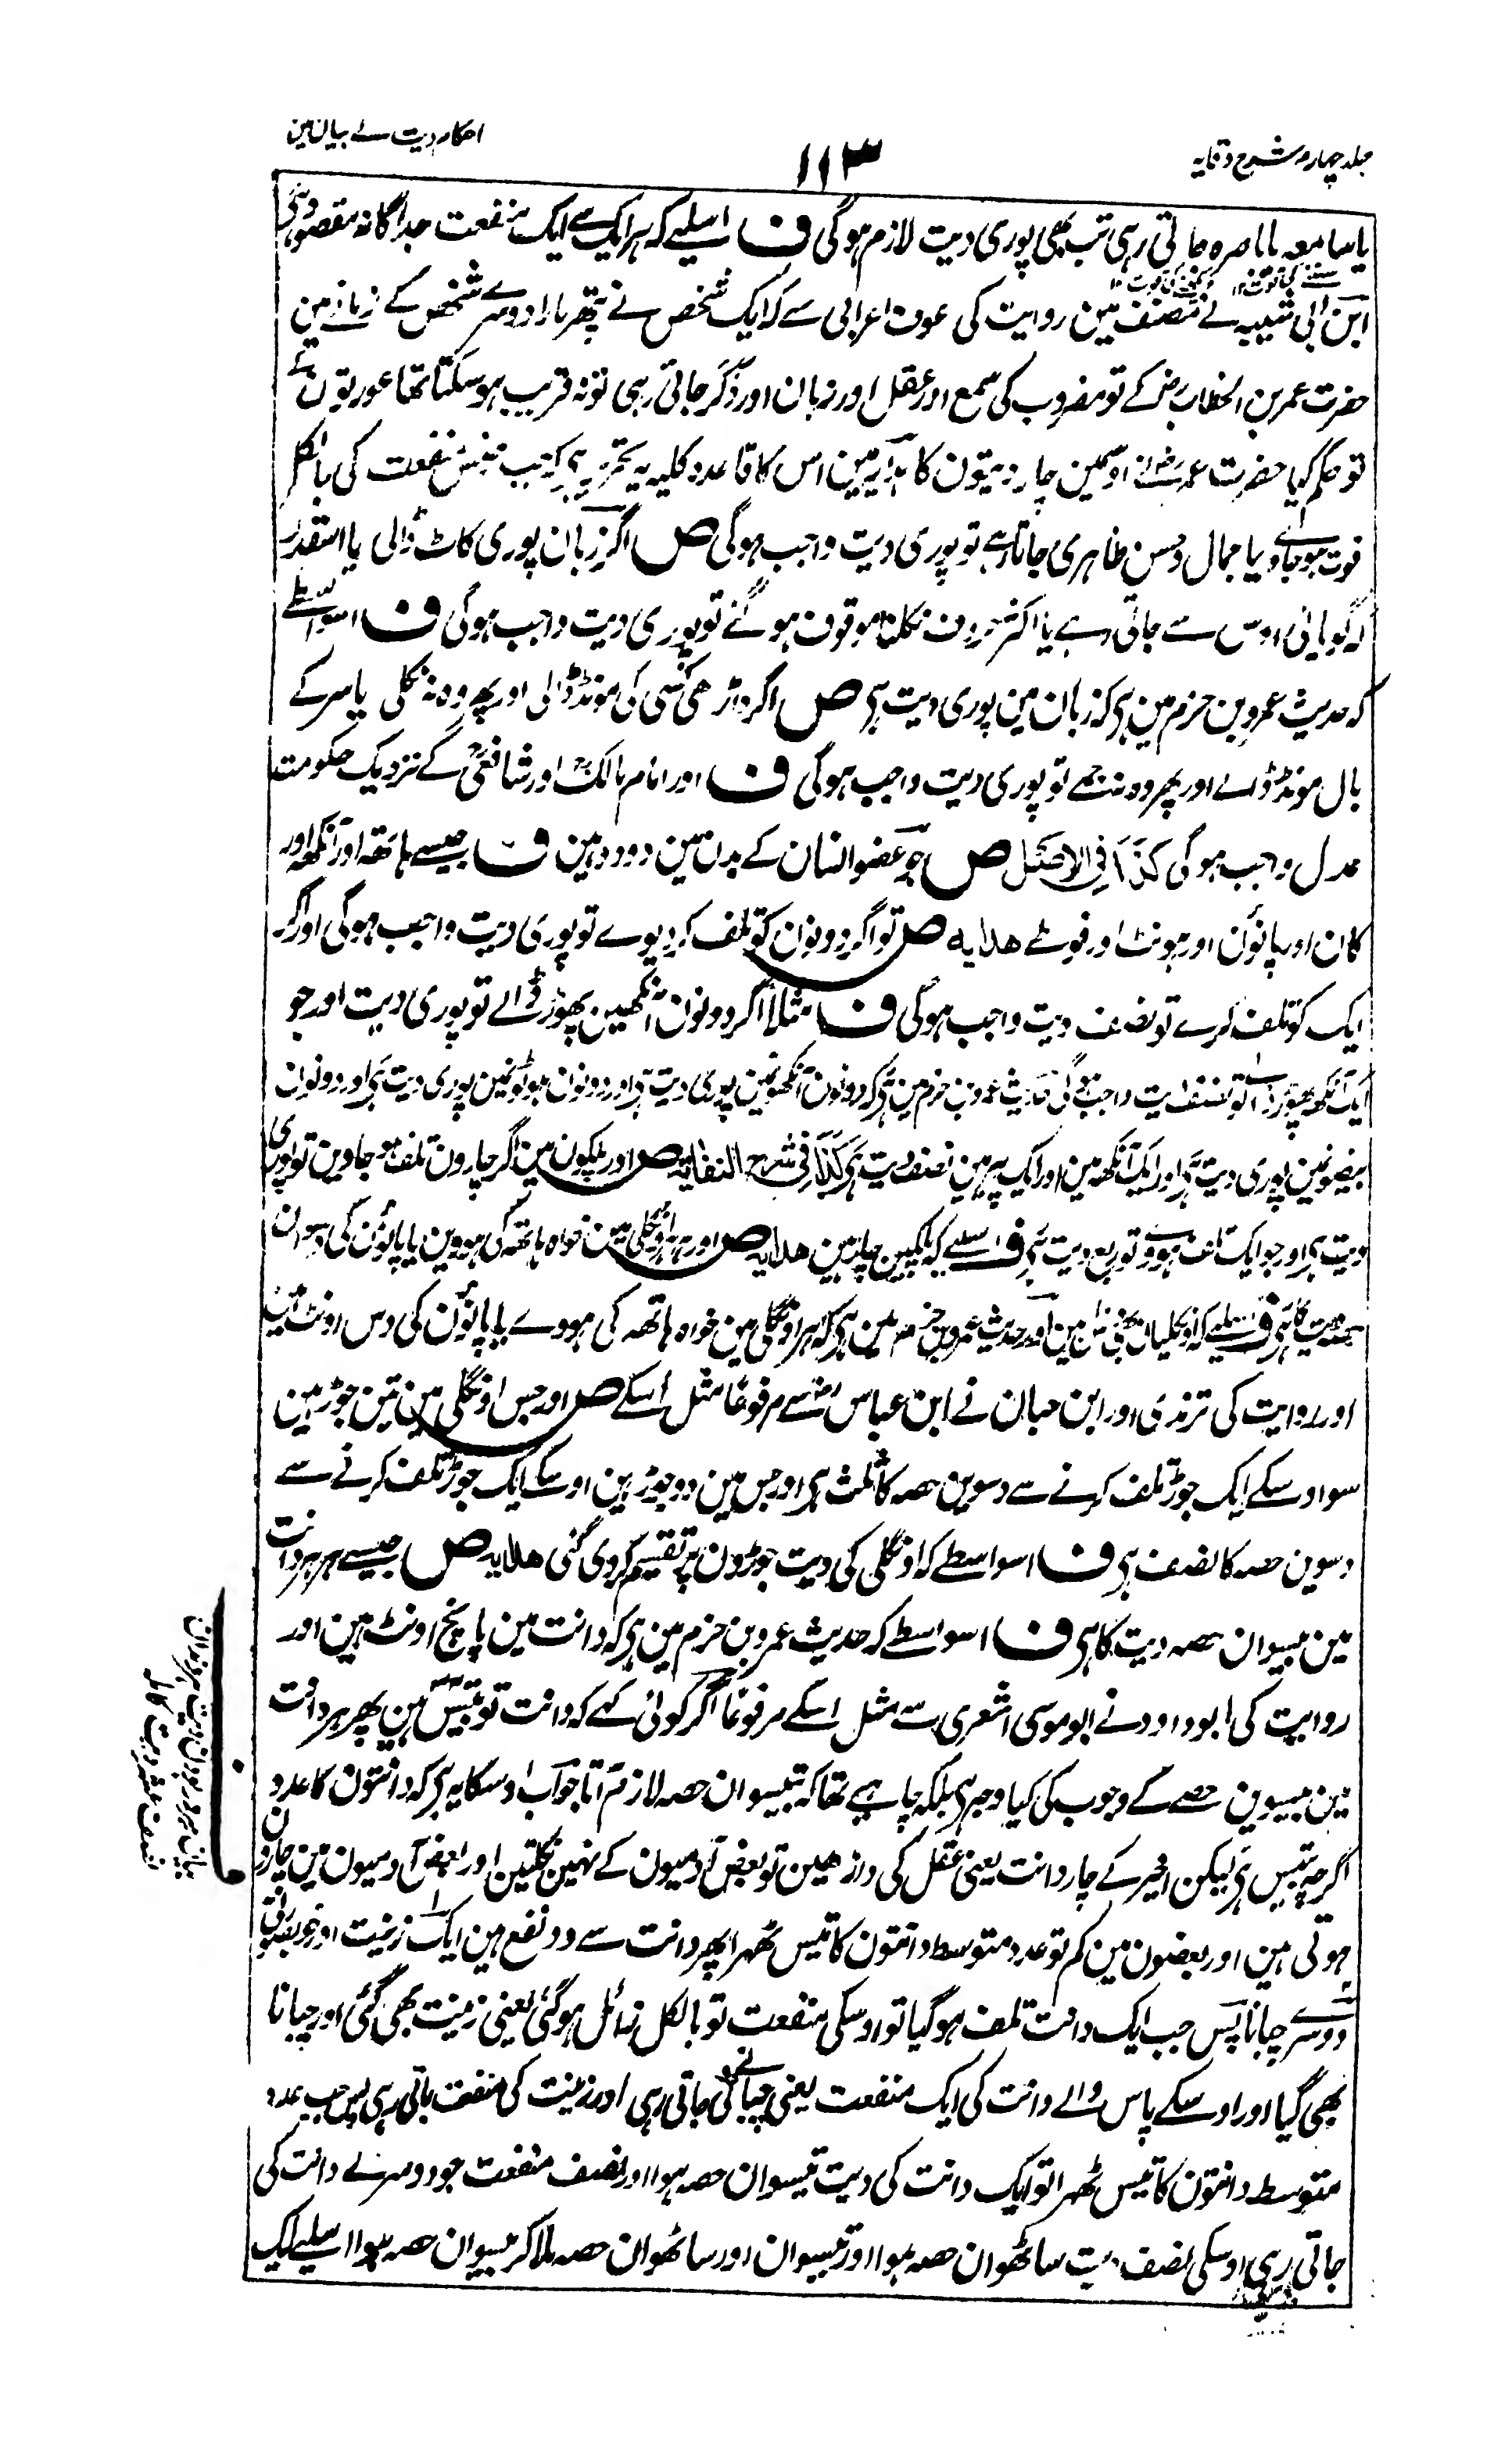 جلد چہارم شرح وقایہ
۱۱۳
احکام دیت کے بیان مین
یا سامعہ یا باصرہ جاتی رہی تب بھی پوری دیت لازم ہوگی ف اسلیے کہ ہر ایک سے ایک منفعت جداگانہ مقصود ہی
سننے کی قوت ۱۲ دیکھنے کی قوت ۱۲
ابن ابی شیبہ نے مصنف مین روایت کی عوف اعرابی سے کہ ایک شخص نے پتھر مارا دوسرے شخص کے زمانے مین
حضرت عمر بن الخطاب رض کے تو مضروب کی سمع اور عقل اور زبان اور ذکر جاتی رہی تو نہ قریب ہو سکتا تھا عورتون کے
تو حکم کیا حضرت عمر رض نے اوسمین چار دیتون کا ہدایہ مین اس کا قاعدہ کلیہ یہ تحریر ہی کہ جب جنس منفعت کی بالکل
فوت ہو جاوے یا جمال و حسن ظاہری جاتا رہے تو پوری دیت واجب ہوگی ص اگر زبان پوری کاٹ ڈالی یا اسقدر
کہ گویائی اوس سے جاتی رہے یا اکثر حروف نکلنا موقوف ہو گئے تو پوری دیت واجب ہوگی ف اسواسطے
کہ حدیث عمرو بن حزم مین ہی کہ زبان مین پوری دیت ہی ص اگر داڑھی کسی کی مونڈ ڈالی اور پھر وہ نہ نکلی یا سر کے
بال مونڈ ڈالے اور پھر وہ نہ جمے تو پوری دیت واجب ہوگی ف اور امام مالکؒ اور شافعیؒ کے نزدیک حکومت
عدل واجب ہوگی کذا فی الاصل ص جو عضو انسان کے بدن مین دو دو ہین ف جیسے ہاتھ اور آنکھ اور
کان اور پانؤن اور ہونٹ اور فوطے ھدایہ ص تو اگر دونوان کو تلف کر دیوے تو پوری دیت واجب ہوگی اور اگر
ایک کو تلف کرے تو نصف دیت واجب ہوگی ف مثلاً اگر دونون آنکھین پھوڑ ڈالے تو پوری دیت اور جو
ایک آنکھ پھوڑ ڈالے تو نصف دیت واجب ہوگی حدیث عمرو بن حزم مین ہی کہ دونون آنکھونمین پوری دیت ہی اور دونون ہونٹونمین پوری دیت ہی اور دونون
بیضونمین پوری دیت ہی اور ایک آنکھ مین اور ایک پیر مین نصف دیت ہی کذا فی شرح النقایہ ص اور پلکون مین اگر چارون تلف ہو جاوین تو پوری
دیت ہی اور جو ایک تلف ہووے تو ربع دیت ہی ف اسلیے کہ پلکین چار ہین ھدایہ ص اور ہر ہر اونگلی مین خواہ ہاتھ کی ہووین یا پانؤن کی دسوان
حصہ دیت کا ہی ف اسلیے کہ اونگلیان بھی دس ہین اور حدیث عمرو بن حزم مین ہی کہ ہر اونگلی مین خواہ ہاتھ کی ہووے یا پانؤن کی دس اونٹ ہین
اور روایت کی ترمذی اور ابن حبان نے ابن عباس رض سے مرفوعًا مثل اُسکے ص اور جس اونگلی مین تین جوڑ ہین
سو اوسکے ایک جوڑ تلف کرنے سے دسوین حصہ کا ثلث ہی اور جس مین دو جوڑ ہین اوسکے ایک جوڑ تلف کرنے سے
دسوین حصہ کا نصف ہی ف اسواسطے کہ اونگلی کی دیت جوڑون پر تقسیم کر دی گئی ھدایہ ص جیسے ہر ہر دانت
مین بیسوان حصہ دیت کا ہی ف اسواسطے کہ حدیث عمرو بن حزم مین ہی کہ دانت مین پانچ اونٹ ہین اور
روایت کی ابو داود نے ابو موسی اشعری سے مثل اسکے مرفوعًا اگر کوئی کہے کہ دانت تو بتیس ہین پھر ہر دانت
مین بیسوین حصے کے وجوب کی کیا وجہ ہی بلکہ چاہیے تھا کہ بتیسوان حصہ لازم آتا جواب اوسکا یہ ہی کہ دانتون کا عدد
اگرچہ بتیس ہی لیکن اخیر کے چار دانت یعنی عقل کی داڑھین تو بعض آدمیون کے نہین نکلتین اور بعض آدمیون مین چارون
ہوتی ہین اور بعضون مین کم تو عدد متوسط دانتون کا تیس ٹھہرا پھر دانت سے دو نفع ہین ایک زینت اور خوبصورتی
دوسرے چبانا پس جب ایک دانت تلف ہو گیا تو اوسکی منفعت تو بالکل زائل ہو گئی یعنی زینت بھی گئی اور چبانا
بھی گیا اور اوسکے پاس والے دانت کی ایک منفعت یعنی چبانے کی جاتی رہی اور زینت کی منفعت باقی رہی پس جب عدد
متوسط دانتون کا تیس ٹھہرا تو ایک دانت کی دیت تیسوان حصہ ہوا اور نصف منفعت جو دوسرے دانت کی
جاتی رہی اوسکی نصف دیت ساٹھوان حصہ ہوا اور تیسوان اور ساٹھوان حصہ ملا کر بیسوان حصہ ہوا اسلیے ایک